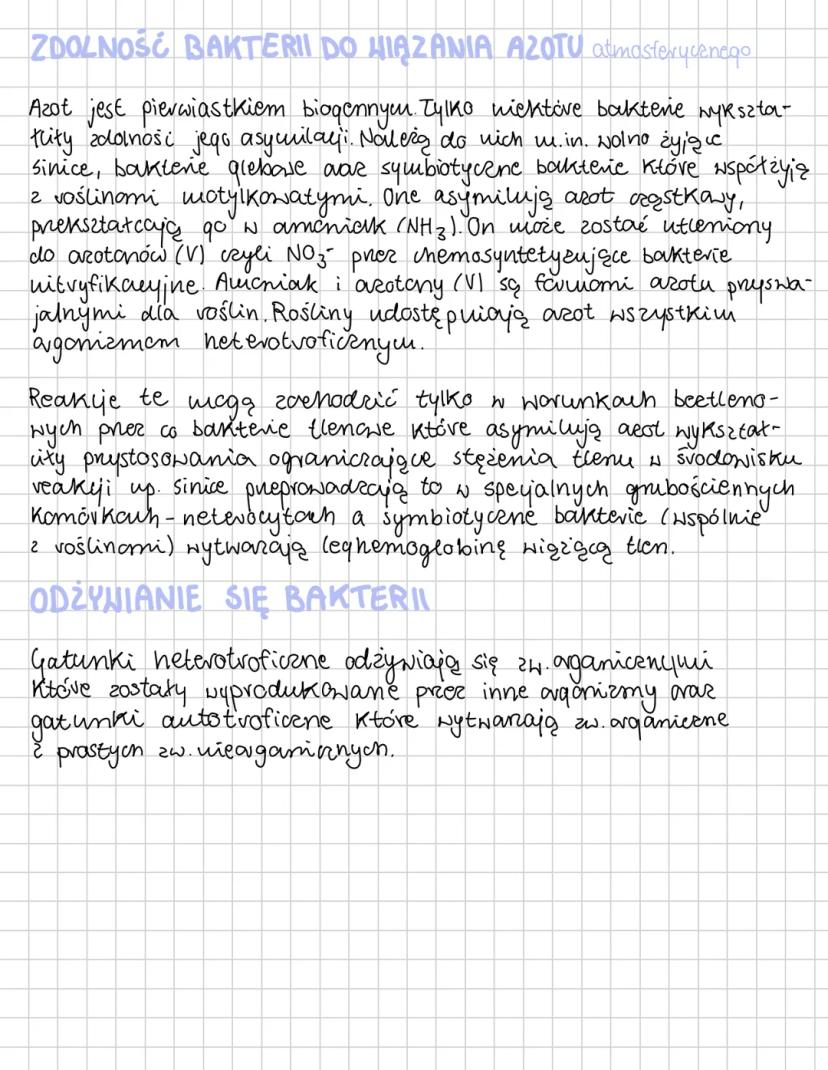 ZDOLNOŚĆ BAKTERII DO WIĄZANIA AZOTU atmosferycznego
Azot jest pierwiastkiem biogennym. Tylko niektóre bakterie wykszta-
łciły zdolność jego asymilacji. Należą do nich m.in. wolno żyjące
sinice, bakterie glebowe oraz symbiotyczne bakterie które współżyją
z roślinami motylkowatymi. One asymilują azot cząstkowy,
przekształcają go w amoniak (NH₃). On może zostać utleniony
do azotanów (V) czyli NO₃⁻ przez chemosyntetyzujące bakterie
nitryfikacyjne. Amoniak i azotany (V) są formami azotu przyswa-
jalnymi dla roślin. Rośliny udostępniają azot wszystkim
organizmom heterotroficznym.
Reakcje te mogą zachodzić tylko w warunkach beztleno-
wych przez co bakterie tlenowe które asymilują azot wykształ-
ciły przystosowania ograniczające stężenia tlenu w środowisku
reakcji np. sinice przeprowadzają to w specjalnych grubościennych
komórkach - heterocytach a symbiotyczne bakterie (wspólnie
z roślinami) wytwarzają leghemoglobinę wiążącą tlen.
ODŻYWIANIE SIĘ BAKTERII
Gatunki heterotroficzne odżywiają się zw. organicznymi
które zostały wyprodukowane przez inne organizmy oraz
gatunki autotroficzne które wytwarzają zw. organiczne
z prostych zw. nieorganicznych.